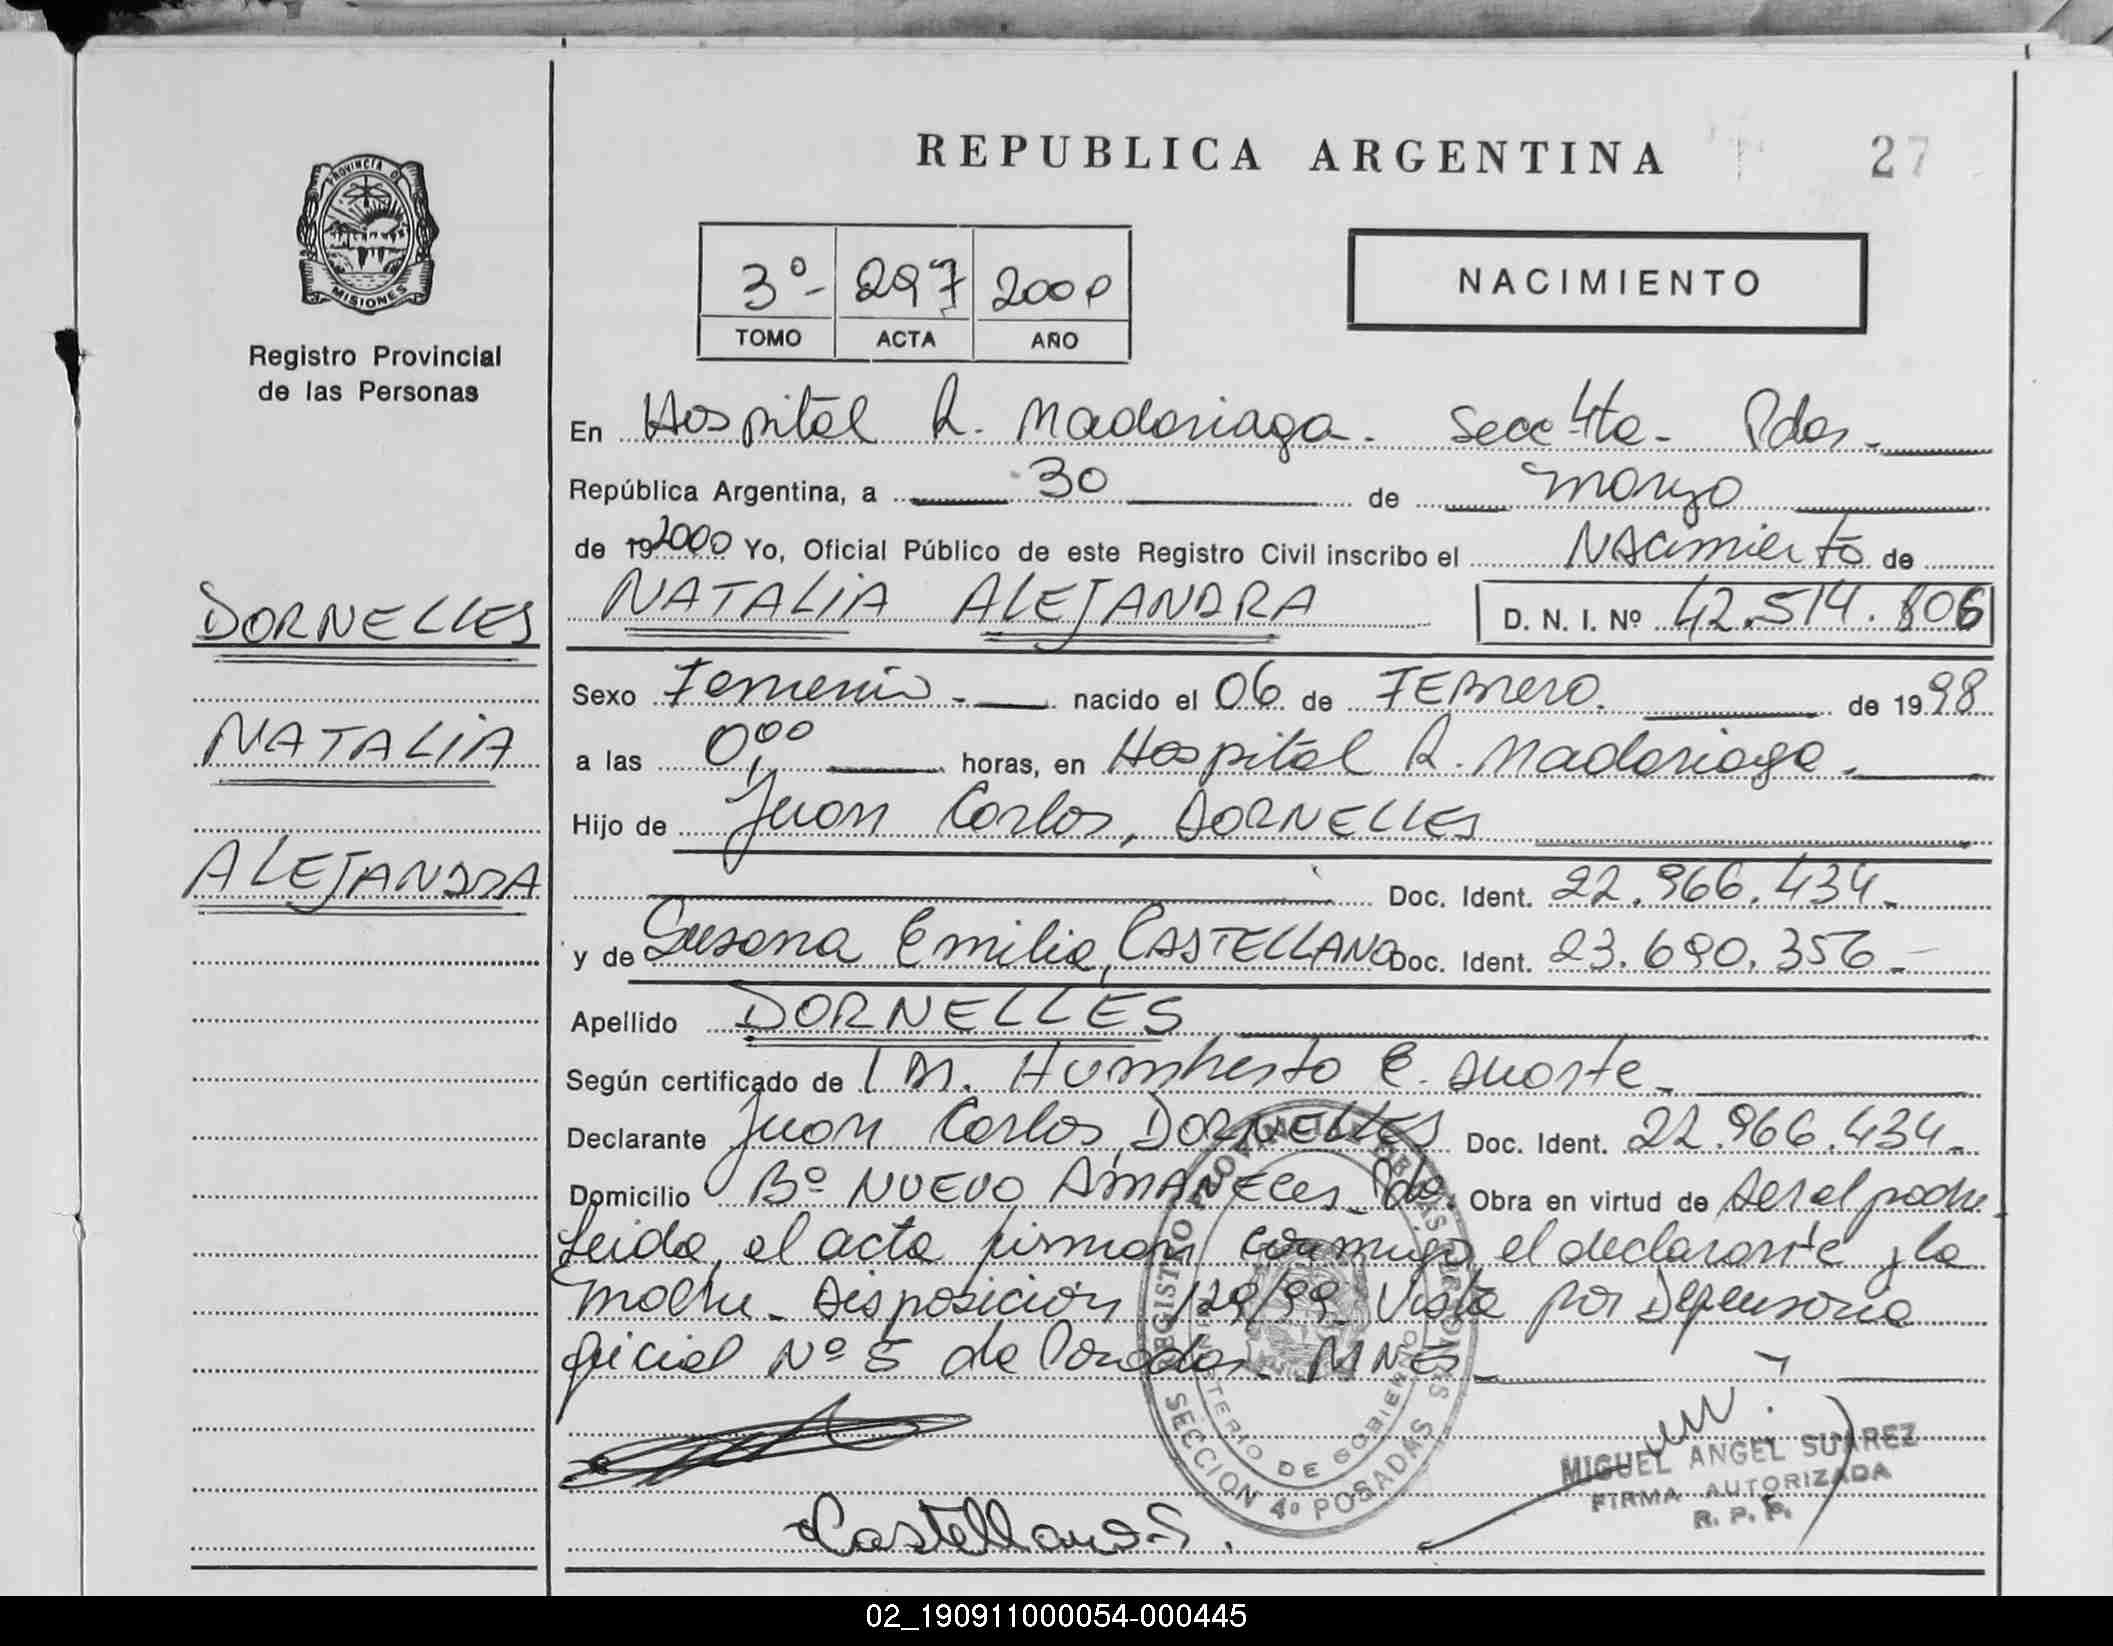 REPUBLICA ARGENTINA 27
PROVINCIA DE
MISIONES
Registro Provincial
de las Personas
3º- 297 2000
TOMO ACTA AÑO
NACIMIENTO
En Hospital R. Madariaga. Secc 4ta - Pdas -
República Argentina, a 30 de Marzo
de 19 2000 Yo, Oficial Público de este Registro Civil inscribo el Nacimiento de
NATALIA ALEJANDRA D. N. I. Nº 42.514.806
DORNELLES
NATALIA
ALEJANDRA
Sexo Femenino - nacido el 06 de FEBrero. de 1998
a las 0,00 horas, en Hospital R. Madariaga.
Hijo de Juan Carlos, DORNELLES
Doc. Ident. 22.966.434-
y de Susana Emilia, CASTELLANO Doc. Ident. 23.690.356-
Apellido DORNELLES
Según certificado de Dr. Humberto E. Duarte-
Declarante Juan Carlos, DORNELLES Doc. Ident. 22.966.434-
Domicilio Bº NUEVO AMANECER - Pdas. Obra en virtud de Ser el padre
Leida, el acta firman conmigo el declarante y la
Madre - Disposición 129/99 Vista por Defensoria
oficial Nº 5 de Posadas - MNES
REGISTRO PROVINCIAL DE LAS PERSONAS
MINISTERIO DE GOBIERNO
SECCION 4º POSADAS
MIGUEL ANGEL SUAREZ
FIRMA AUTORIZADA
R. P. P.
Castellano S.
02_190911000054-000445